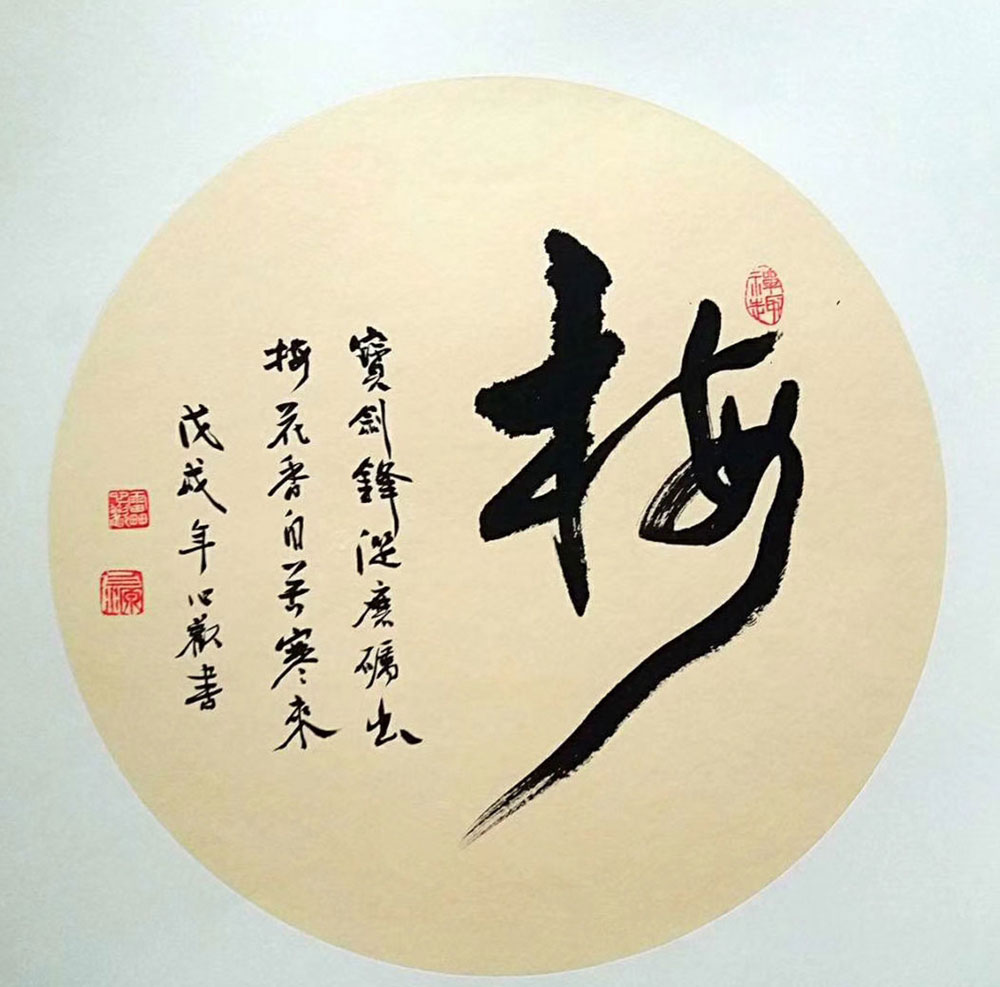 梅
寶劍鋒從磨礪出
梅花香自苦寒來
戊戌年心歡書
禪趣